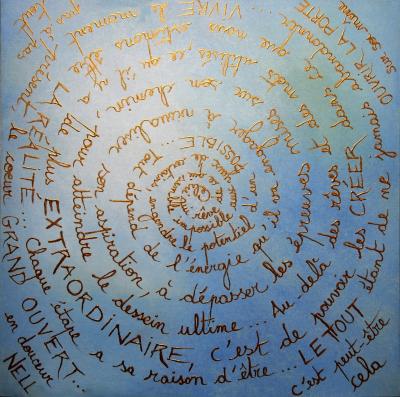 rêve
impossible
engendre le potentiel
POSSIBLE... Tout dépend de l'énergie qu'on engage à visualiser
son aspiration, à dépasser les épreuves mises sur son chemin
pour atteindre le dessein ultime... Au-delà des rêves et des mots utilisés, ce qu'il y a de plus
EXTRAORDINAIRE, c'est de pouvoir les CRÉER
dans ce que nous estimons être
LA RÉALITÉ... Chaque étape a sa raison d'être... LE TOUT étant de ne jamais abandonner
... VIVRE le moment
présent, le coeur GRAND OUVERT...
c'est peut-être cela
OUVRIR LA PORTE
pas à
en douceur
NELL